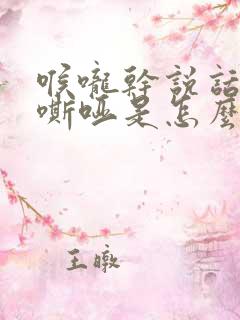 喉嚨幹說話
嘶啞是怎麼
王暾